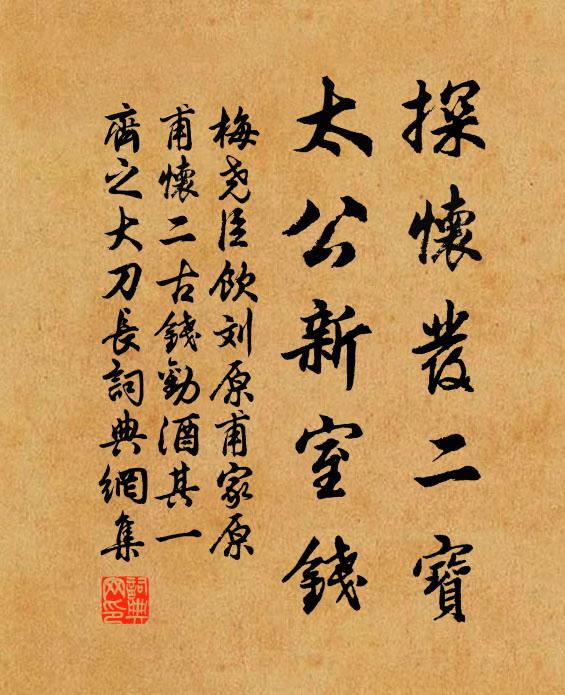 探懷發二寶
太公新室錢
梅尧臣飲刘原甫家原
甫懷二古錢勸酒其一
齊之大刀長詞典網集
詞典网印